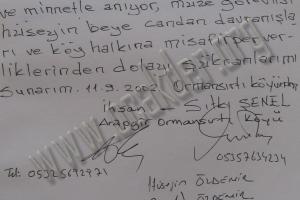 ve minnetle anıyor, müze görevlisi
hüseyin beye candan davranışla
rı ve köy halkına misafirperver-
liklerinden dolayı şükranlarımı
sunarım. 11.9.2002 Ormansırtı köyünden
İhsan - Sıtkı ŞENEL
Arapgir Ormansırtı Köyü
Tel: 05325692971 05357634234
Hüseyin ÖZDEMİR
ÖZDEMİR